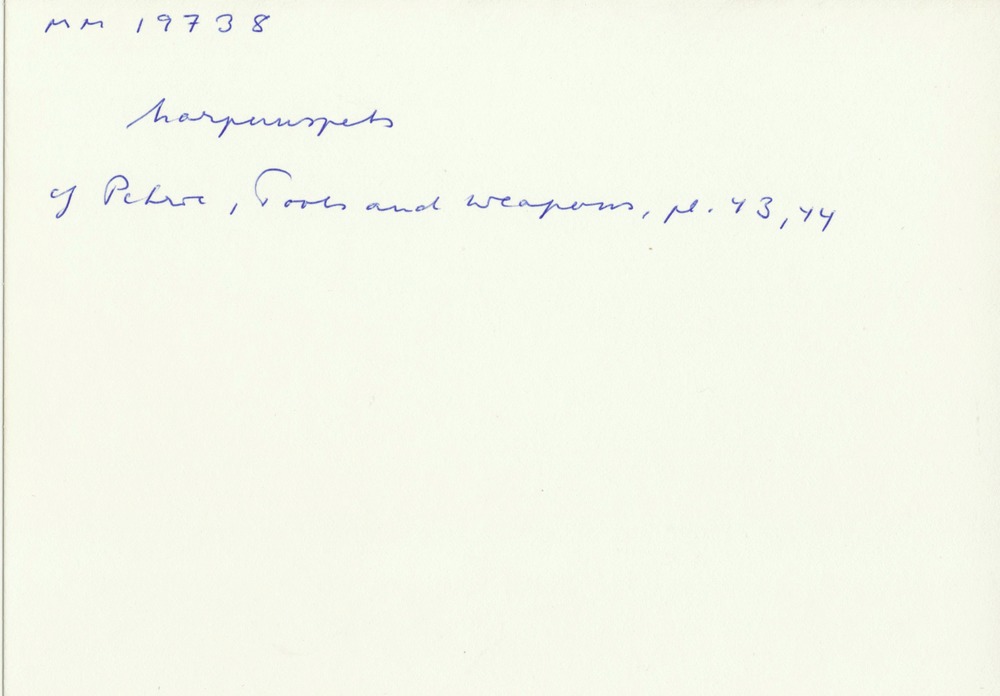 MM 19738
harpunspets
cf Petrie, Tools and weapons, pl. 43, 44